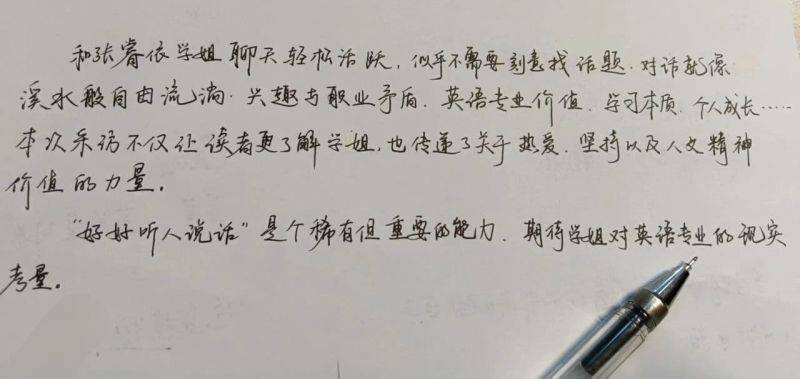 和张睿依学姐聊天轻松活跃，似乎不需要刻意找话题．对话就像
溪水般自由流淌．兴趣与职业矛盾．英语专业价值．学习本质．个人成长……
本次采访不仅让读者更了解学姐，也传递了关于热爱．坚持以及人文精神
价值的力量。
“好好听人说话”是个稀有但重要的能力．期待学姐对英语专业的现实
考量。